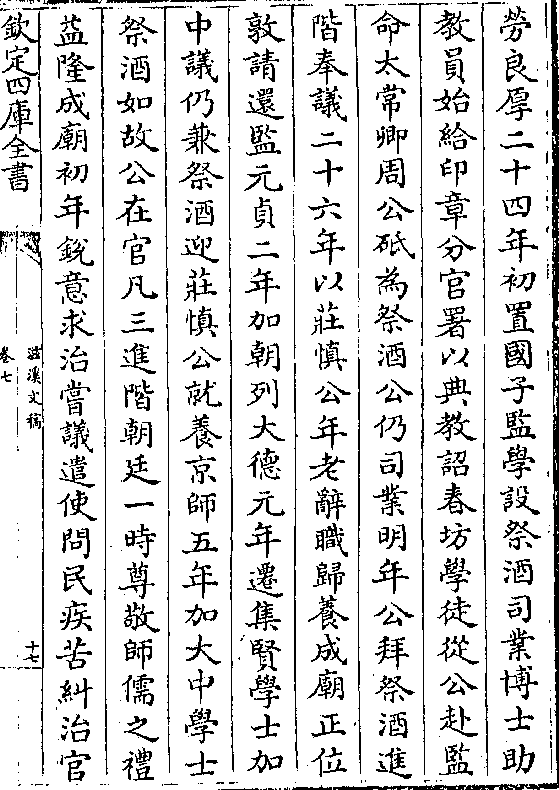 勞良厚二十四年初置國子監學設祭酒司業博士助
教員始給印章分官署以典教詔春坊學徒從公赴監
命太常卿周公砥為祭酒公仍司業明年公拜祭酒進
階奉議二十六年以莊慎公年老辭職歸養成廟正位
敦請還監元貞二年加朝列大德元年遷集賢學士加
中議仍兼祭酒迎莊慎公就養京師五年加大中學士
祭酒如故公在官凡三進階朝廷一時尊敬師儒之禮
益隆成廟初年銳意求治嘗議遣使問民疾苦糾治官
欽定四庫全書
滋溪文稿
卷七
十七